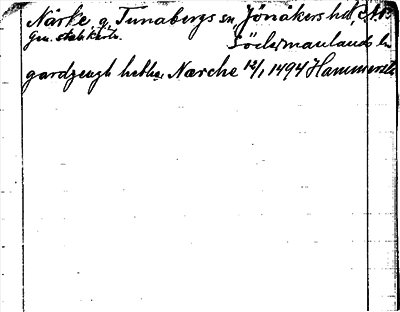 Närke g. Tunabergs sn, Jönåkers hd
Gen. stab. karta. Södermanlands l.
gardzengh hethe, Nærche 12/1 1494 Hammersta